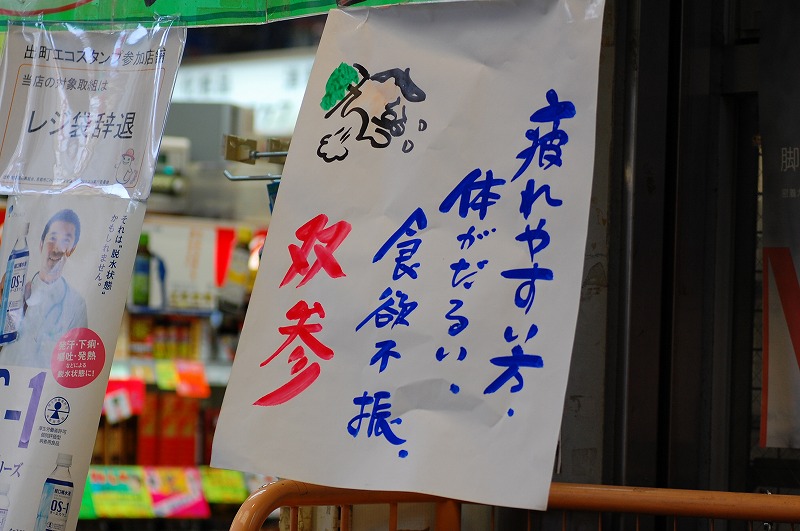 疲れやすい方.
体がだるい.
食欲不振.
双参
出町エコスタンプ参加店舗
当店の対象取組は
レジ袋辞退
それは“脱水状態”
かもしれません。
発汗・下痢・
嘔吐・発熱
などによる
脱水状態に!
OS-1
-1
ーズ
OS-1
脚